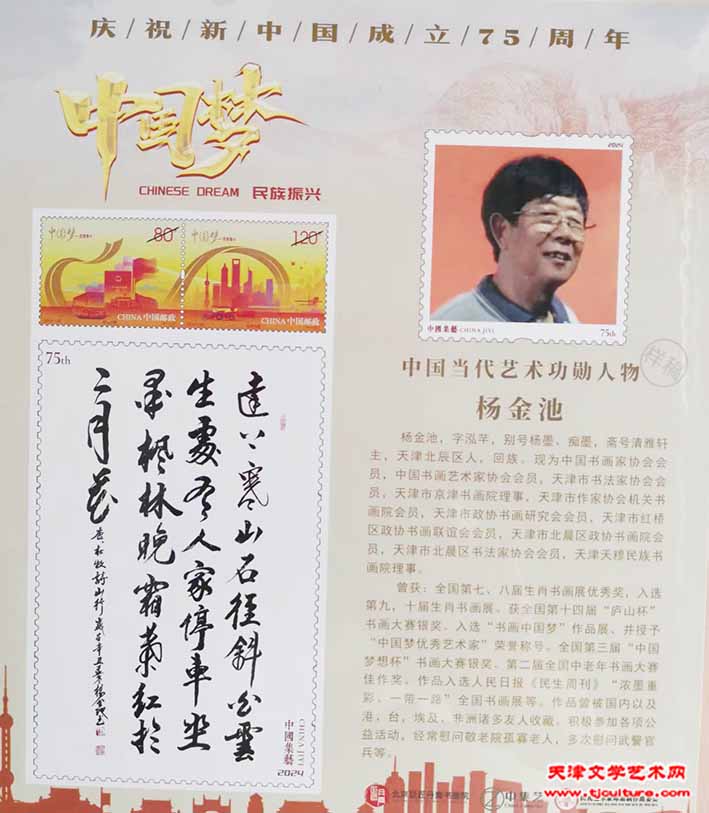 庆/祝/新/中/国/成/立/75/周/年
中国梦
CHINESE DREAM 民族振兴
中国梦
80
CHINA 中国邮政
中国梦
120
CHINA 中国邮政
75th
远上寒山石径斜白云
生处有人家停车坐
爱枫林晚霜叶红于
二月花
中國集藝
CHINA JIYI
2024
2024
中國集藝 CHINA JIYI
75th
样稿
中国当代艺术功勋人物
杨金池
杨金池，字泓芊，别号杨墨、痴墨，斋号清雅轩
主，天津北辰区人，回族。现为中国书画家协会会
员，中国书画艺术家协会会员，天津市书法家协会会
员，天津市京津书画院理事，天津市作家协会机关书
画院会员，天津市政协书画研究会会员，天津市红桥
区政协书画联谊会会员，天津市北晨区政协书画院会
员，天津市北晨区书法家协会会员，天津天穆民族书
画院理事。
曾获：全国第七、八届生肖书画展优秀奖，入选
第九，十届生肖书画展。获全国第十四届“庐山杯”
书画大赛银奖。入选“书画中国梦”作品展、并授予
“中国梦优秀艺术家”荣誉称号。全国第三届“中国
梦想杯”书画大赛银奖。第二届全国中老年书画大赛
佳作奖。作品入选人民日报《民生周刊》“浓墨重
彩、一带一路”全国书画展等。作品曾被国内以及
港，台，埃及、非洲诸多友人收藏。积极参加各项公
益活动，经常慰问敬老院孤寡老人，多次慰问武警官
兵等。
中集艺
天津文学艺术网
www.tjculture.com